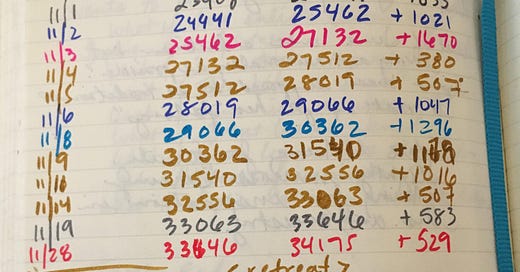 11/1
11/2 24441 25462 +1021
11/3 25462 27132 +1670
11/4 27132 27512 + 380
11/5 27512 28019 + 507
11/6 28019 29066 + 1047
11/8 29066 30362 +1296
11/9 30362 31540
11/10 31540 32556 +1016
11/14 32556 33063 + 507
11/19 33063 33646 + 583
11/28 33646 34175 + 529